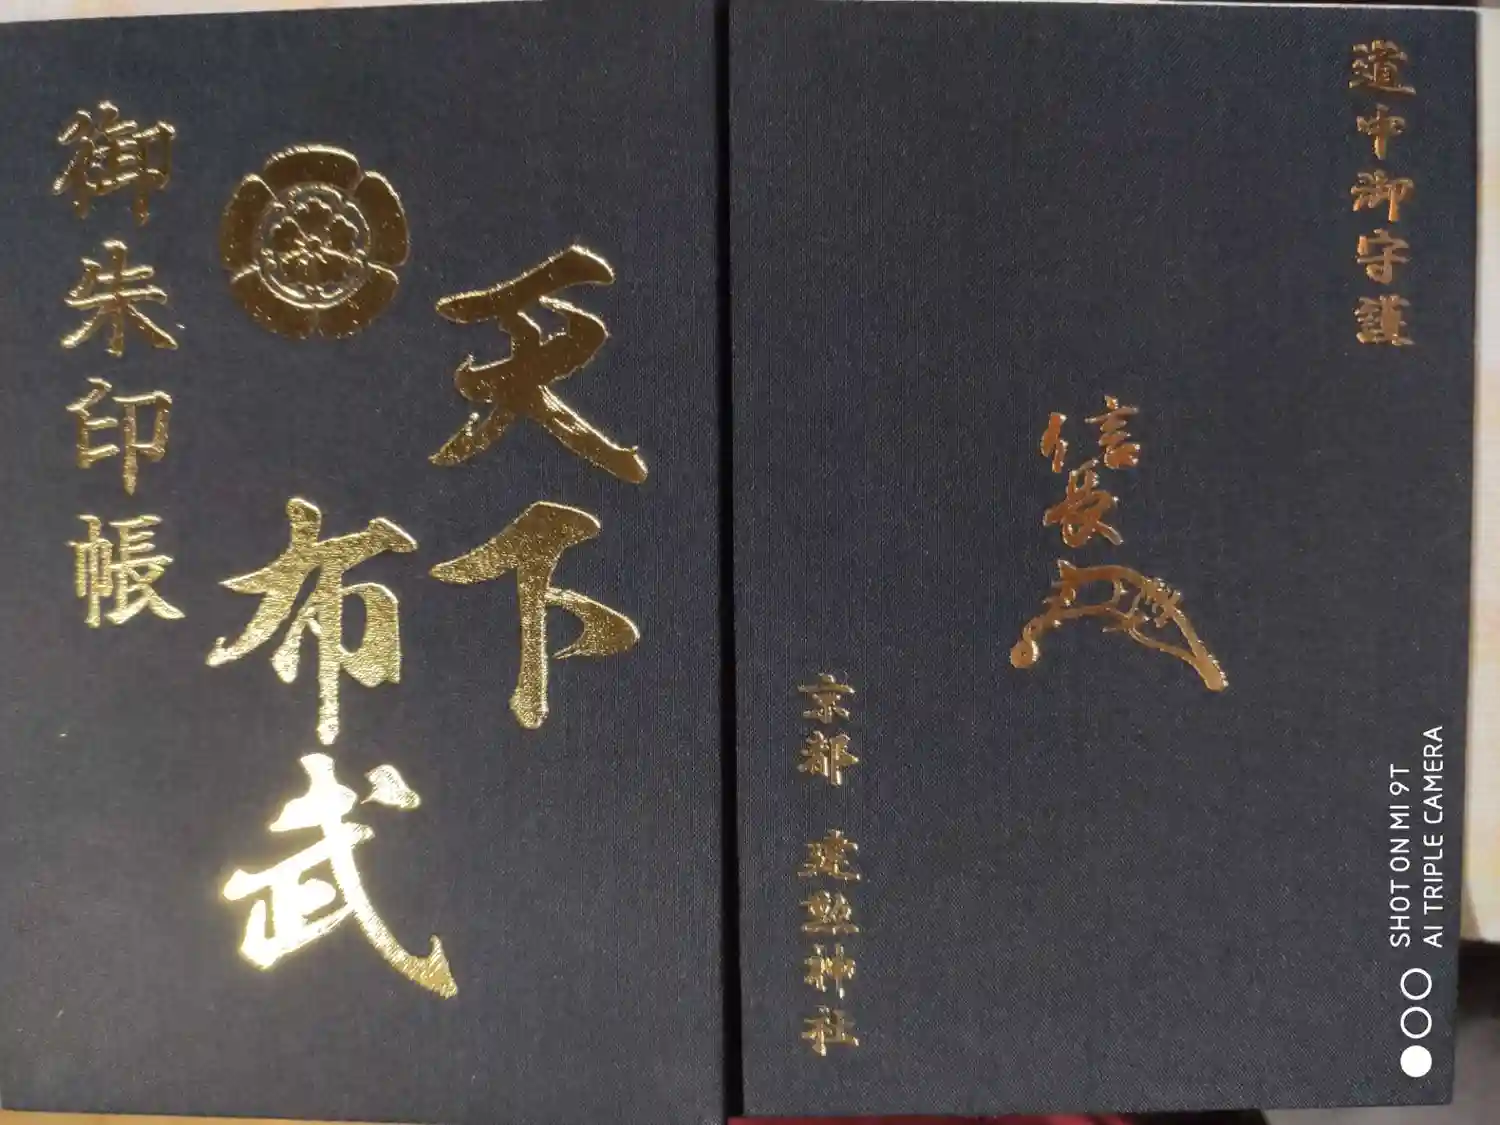 天下
布武
御朱印帳
道中御守護
信長
京都 建勲神社
SHOT ON MI 9T
AI TRIPLE CAMERA